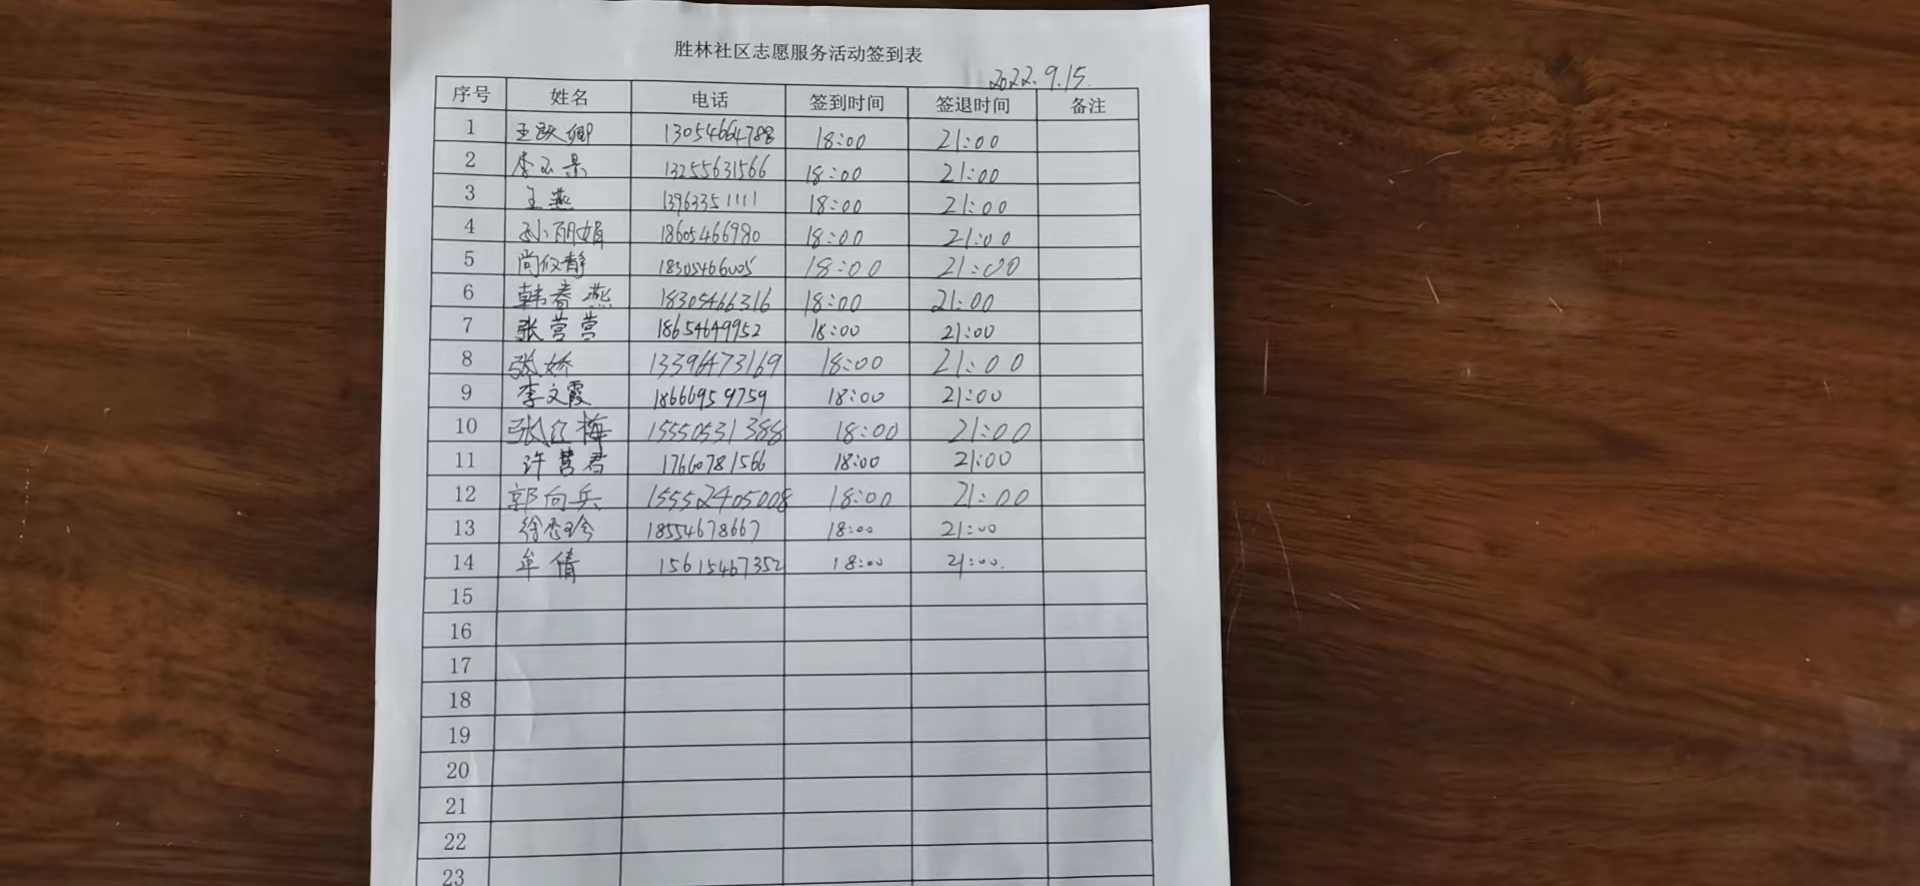 胜林社区志愿服务活动签到表
2022.9.15.
序号 姓名 电话 签到时间 签退时间 备注
1 王跃卿 13054664788 18:00 21:00
2 李玉景 13255631566 18:00 21:00
3 王燕 13963351111 18:00 21:00
4 孙丽娟 18605466980 18:00 21:00
5 尚仅静 18305466005 18:00 21:00
6 韩春燕 18305466316 18:00 21:00
7 张营营 18654649952 18:00 21:00
8 张娇 13396473169 18:00 21:00
9 李文霞 18666959759 18:00 21:00
10 张红梅 15550531388 18:00 21:00
11 许营君 17660781566 18:00 21:00
12 郭向兵 15552405008 18:00 21:00
13 徐秀玲 18554678667 18:00 21:00
14 牟倩 15615467352 18:00 21:00.
15
16
17
18
19
20
21
22
23